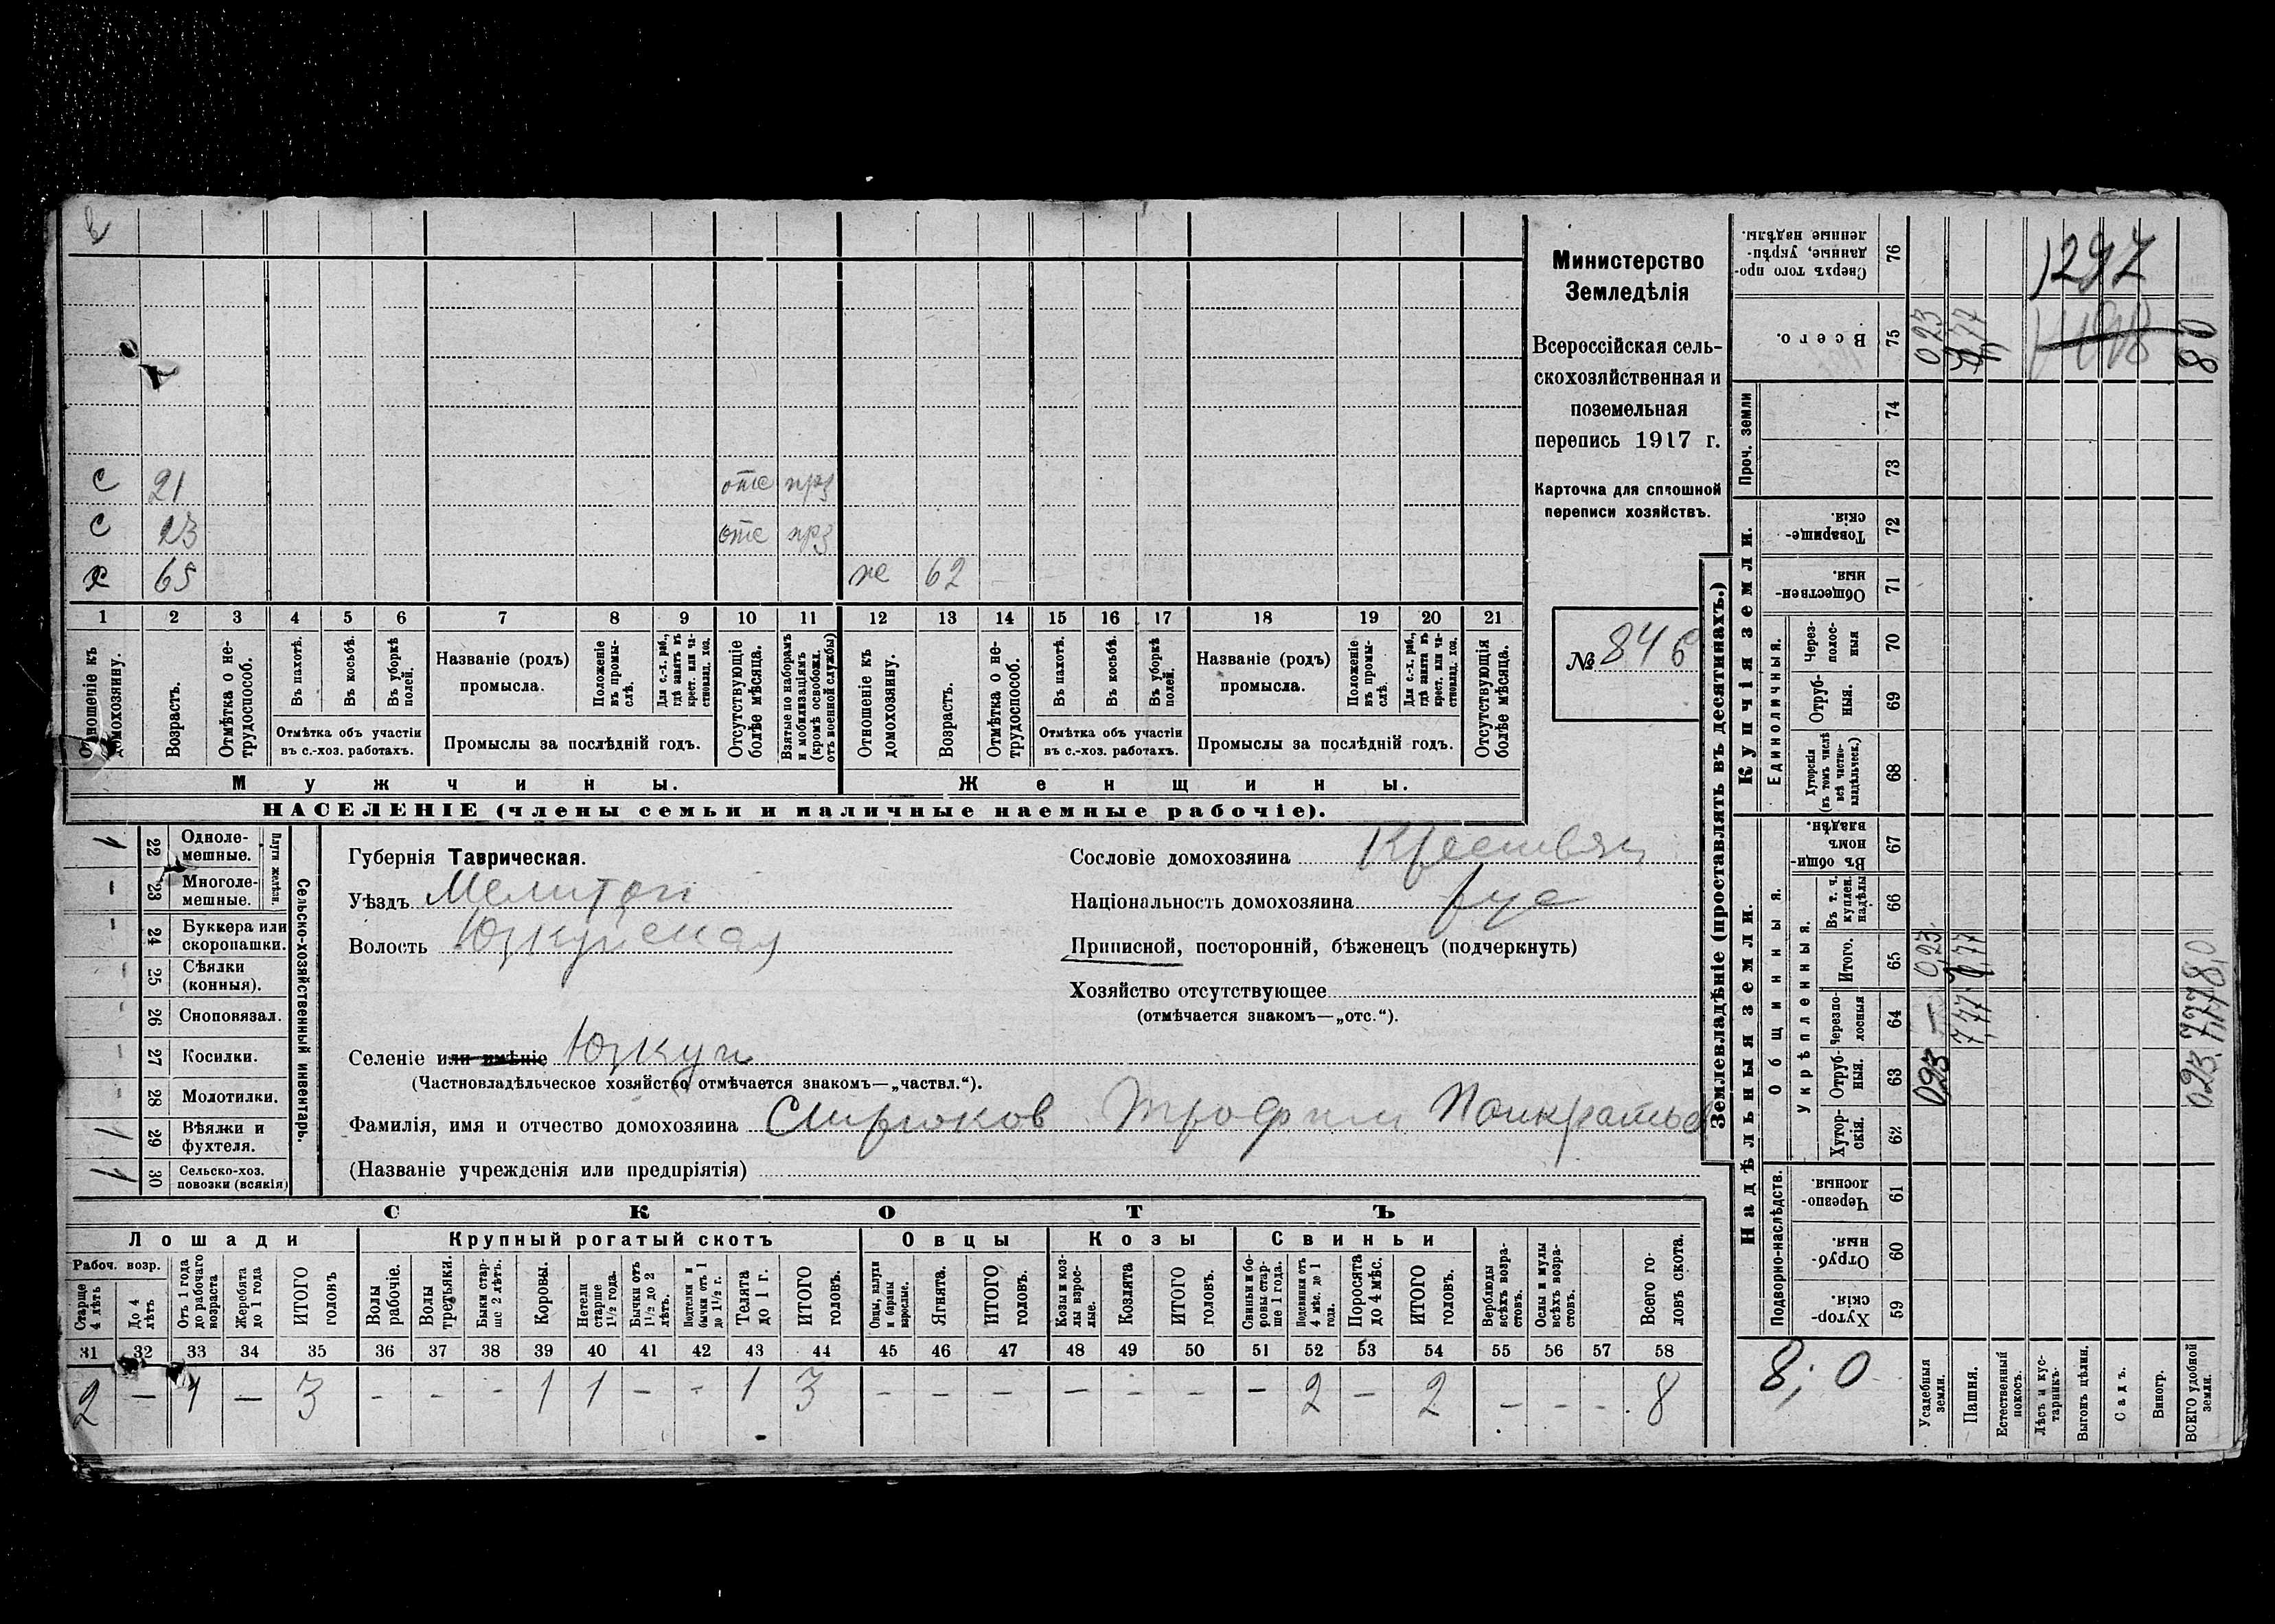 Министерство
Земледѣлія
Всероссійская сель-
скохозяйственная и
поземельная
перепись 1917 г.
Карточка для сплошной
переписи хозяйствъ.
№ 846
с 21 отс прз
с 23 отс прз
х 65 же 62
1 2 3 4 5 6 7 8 9 10 11 12 13 14 15 16 17 18 19 20 21
Отношеніе къ домохозяину.
Возрастъ.
Отмѣтка о не-
трудоспособ.
Въ пахотѣ.
Въ косьбѣ.
Въ уборкѣ
полей.
Отмѣтка объ участіи
въ с.-хоз. работахъ.
Названіе (родъ)
промысла.
Положеніе
въ промы-
слѣ.
Для с.-х. раб.,
гдѣ занятъ въ
крест. или ча-
стновлад. хоз.
Промыслы за послѣдній годъ.
Отсутствующіе
болѣе мѣсяца.
Взятые по наборамъ
и мобилизаціямъ
(кромѣ освобожд.
отъ военной службы)
Отношеніе къ
домохозяину.
Возрастъ.
Отмѣтка о не-
трудоспособ.
Въ пахотѣ.
Въ косьбѣ.
Въ уборкѣ
полей.
Отмѣтка объ участіи
въ с.-хоз. работахъ.
Названіе (родъ)
промысла.
Положеніе
въ промы-
слѣ.
Для с.-х. раб.,
гдѣ занята въ
крест. или ча-
стновлад. хоз.
Промыслы за послѣдній годъ.
Отсутствующія
болѣе мѣсяца.
Мужчины. Женщины.
НАСЕЛЕНІЕ (члены семьи и наличные наемные рабочіе).
Сельско-хозяйственный инвентарь.
Плуги желѣзн.
1 22 Одноле-
мешные.
- 23 Многоле-
мешные.
- 24 Буккера или
скоропашки.
- 25 Сѣялки
(конныя).
- 26 Сноповязал.
- 27 Косилки.
- 28 Молотилки.
1 29 Вѣялки и
фухтеля.
1 30 Сельско-хоз.
повозки (всякія)
Губернія Таврическая.
Уѣздъ Мелитоп
Волость Юзкуйская
Селеніе или имѣніе Юзкуи
(Частновладѣльческое хозяйство отмѣчается знакомъ—„частвл.“).
Фамилія, имя и отчество домохозяина Трофим Панкратьев
(Названіе учрежденія или предпріятія)
Сословіе домохозяина Крестьян
Національность домохозяина рус
Приписной, посторонній, бѣженецъ (подчеркнуть)
Хозяйство отсутствующее
(отмѣчается знакомъ—„отс.“).
СКОТЪ
Лошади Крупный рогатый скотъ Овцы Козы Свиньи
Рабоч. возр.
Старше
4 лѣтъ
До 4
лѣтъ
Отъ 1 года
до рабочаго
возраста
Жеребята
до 1 года
ИТОГО
головъ
Волы
рабочіе.
Волы
третьяки.
Быки стар-
ше 2 лѣтъ.
Коровы.
Нетели
старше
1½ года.
Бычки отъ
1½ до 2
лѣтъ.
Подтелки и
бычки отъ 1
до 1½ г.
Телята
до 1 г.
ИТОГО
головъ.
Овцы, валухи
и бараны
взрослые.
Ягнята.
ИТОГО
головъ.
Козы и коз-
лы взрос-
лые.
Козлята
ИТОГО
головъ.
Свиньи и бо-
ровы стар-
ше 1 года.
Подсвинки отъ
4 мѣс. до 1
года.
Поросята
до 4 мѣс.
ИТОГО
головъ.
Верблюды
всѣхъ возра-
стовъ.
Ослы и мулы
всѣхъ возра-
стовъ.
Всего го-
ловъ скота.
31 32 33 34 35 36 37 38 39 40 41 42 43 44 45 46 47 48 49 50 51 52 53 54 55 56 57 58
2 — 1 — 3 - - - 1 1 - - 1 3 - - - - - - - 2 - 2 - - - 8
Землевладѣніе (проставлять въ десятинахъ.)
Надѣльныя земли. Купчія земли. Проч. земли
Подворно-наслѣдств.
Общинныя.
Укрѣпленныя.
Единоличныя.
Сверхъ того про-
данные, укрѣп-
ленные надѣлы. 76
Всего. 75 0,23 7,77 8,0
74
73
Товарище-
скія. 72
Обществен-
ныя. 71
Через-
полос-
ныя 70
Отруб-
ныя. 69
Хуторскія
(въ томъ числѣ
всѣ частно-
владѣльческ.) 68
Въ общи-
номъ
владѣн. 67
Въ т. ч.
куплен.
надѣлы 66
Итого. 65 0,23 7,77 8,0
Черезпо-
лосныя 64 — 7,77 7,77
Отруб-
ныя. 63 0,23 0,23
Хутор-
скія. 62
Черезпо-
лосныя. 61
Отруб-
ныя. 60
Хутор-
скія. 59
Усадебныя
земли.
Пашня.
Естественный
покосъ.
Лѣсъ и кус-
тарникъ.
Выгонъ цѣлин.
Садъ.
Виногр.
ВСЕГО удобной
земли.
1297
8; 0